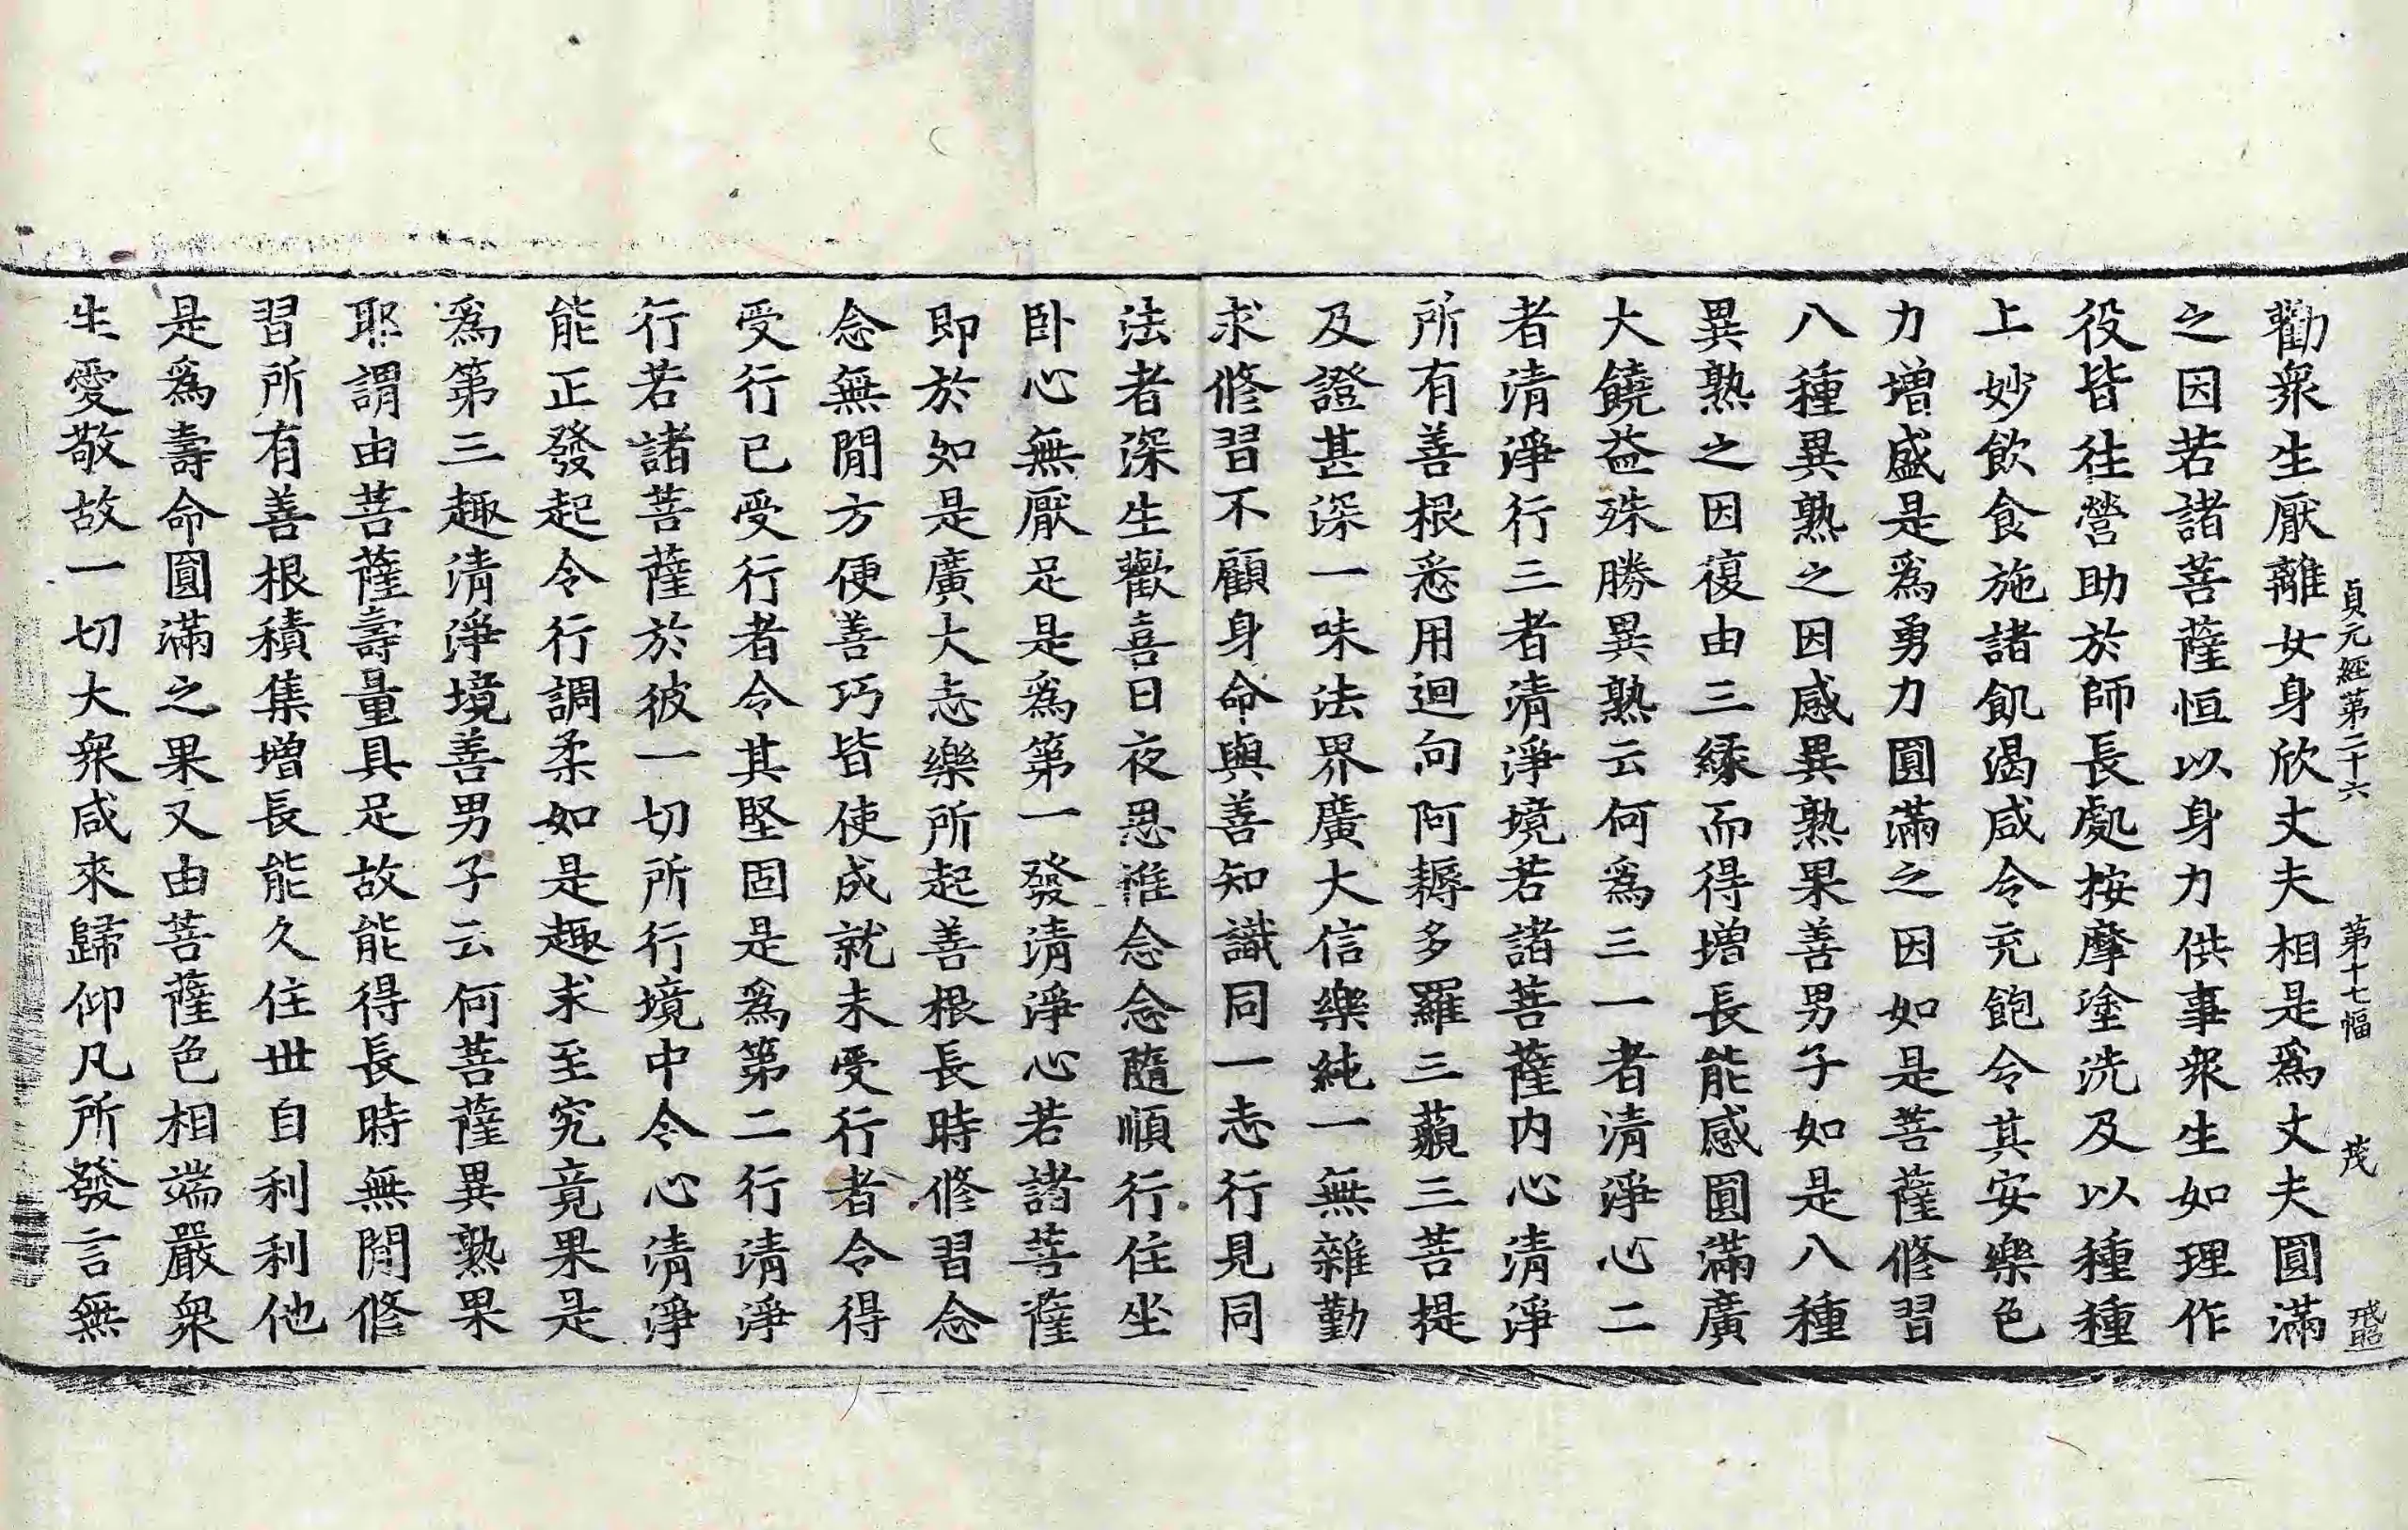 貞元經第二十六 第十七幅 茂 戒昭
勸衆生厭離女身欣丈夫相是爲丈夫圓滿
之因若諸菩薩恒以身力供事衆生如理作
役皆往營助於師長處按摩塗洗及以種種
上妙飲食施諸飢渴咸令充飽令其安樂色
力增盛是爲勇力圓滿之因如是菩薩修習
八種異熟之因感異熟果善男子如是八種
異熟之因復由三緣而得增長能感圓滿廣
大饒益殊勝異熟云何爲三一者清淨心二
者清淨行三者清淨境若諸菩薩内心清淨
所有善根悉用迴向阿耨多羅三藐三菩提
及證甚深一味法界廣大信樂純一無雜勤
求修習不顧身命與善知識同一志行見同
法者深生歡喜日夜思惟念念隨順行住坐
卧心無厭足是爲第一發清淨心若諸菩薩
即於如是廣大志樂所起善根長時修習念
念無閒方便善巧皆使成就未受行者令得
受行已受行者令其堅固是爲第二行清淨
行若諸菩薩於彼一切所行境中令心清淨
能正發起令行調柔如是趣求至究竟果是
爲第三趣清淨境善男子云何菩薩異熟果
耶謂由菩薩壽量具足故能得長時無閒修
習所有善根積集增長能久住世自利利他
是爲壽命圓滿之果又由菩薩色相端嚴衆
生愛敬故一切大衆咸來歸仰凡所發言無